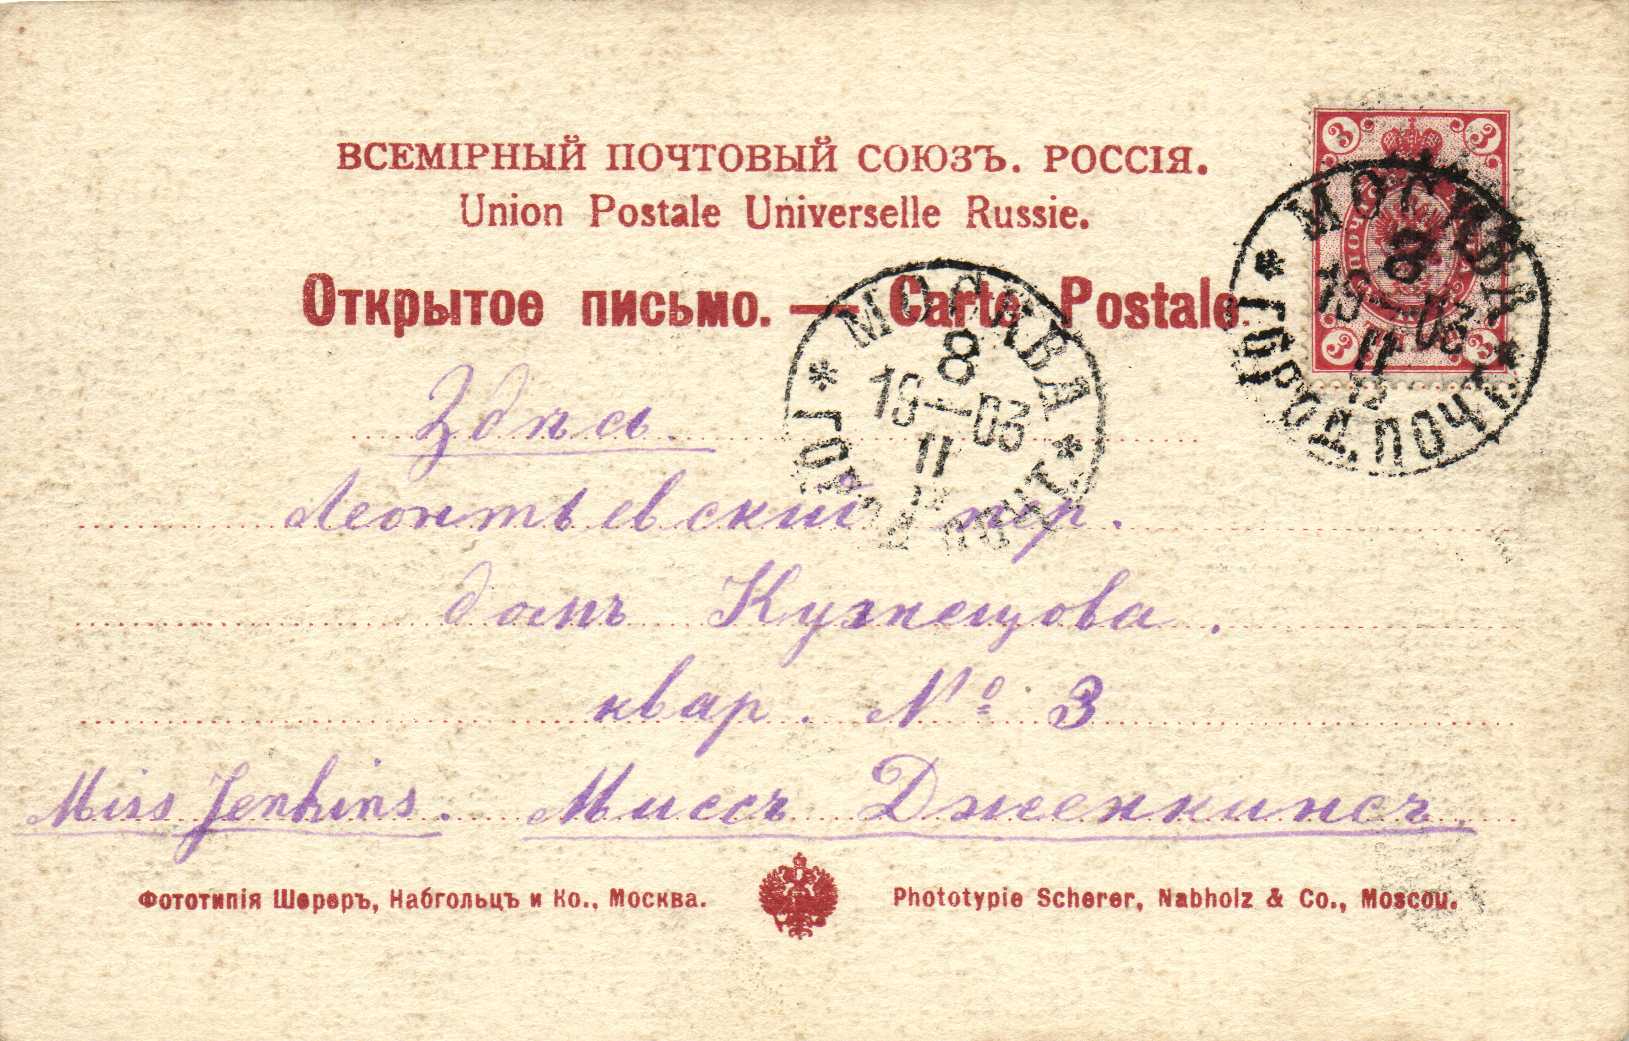 ВСЕМІРНЫЙ ПОЧТОВЫЙ СОЮЗЪ. РОССІЯ.
Union Postale Universelle Russie.
Открытое письмо. — Carte Postale
3 3
3 3
МОСКВА
8
19—03
II
12
ГОРОД. ПОЧТ.
МОСКВА
8
19—03
II
ГОРОД. ПОЧТ.
Здѣсь.
Леонтьевскій пер.
домъ Кузнецова.
квар. № 3
Miss Jenkins. Миссъ Дженкинсъ.
Фототипія Шереръ, Набгольцъ и Ко., Москва.
Phototypie Scherer, Nabholz & Co., Moscou.